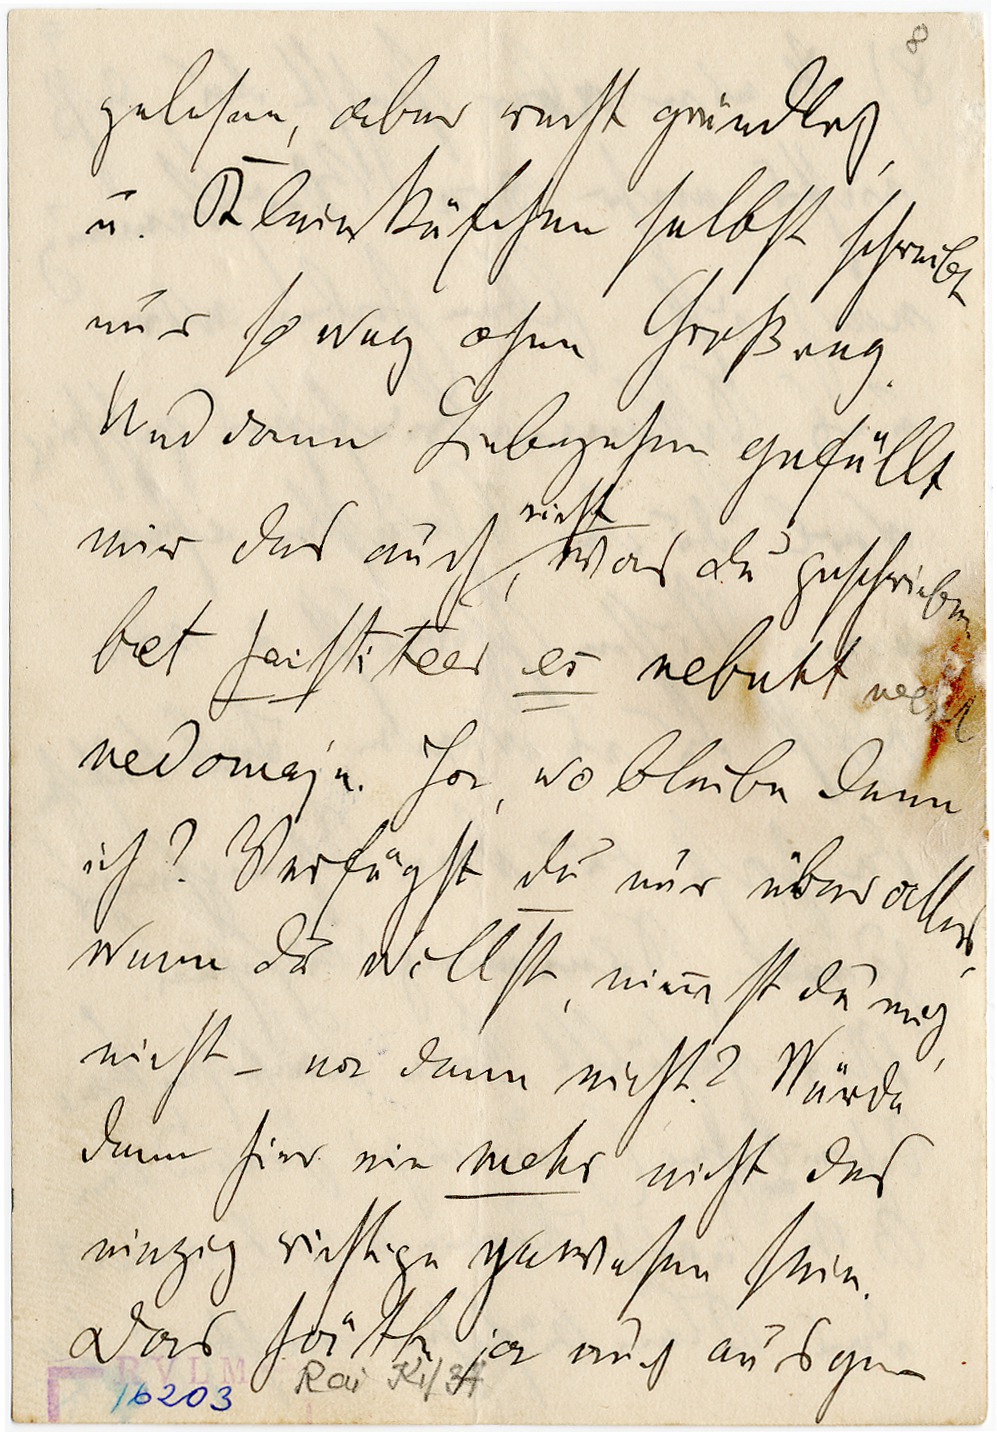 8
gelesen, aber recht gründlich,
u. Kleinkäfchen selbst schreibt
nur so weg ohne Großeng.
Und dann Liebezehen gefällt
mir das auch nicht,
was du geschrieben
bet es nebukt
nedomaja. Ja, wo bleibe denn
ich? Verfügst du nur über alles,
wenn du willst, nimmst du mich
nicht – na dann nicht? Würde
denn hier ein mehr nicht das
einzig richtige gewesen sein.
Das hätte ja auch ausge-
RVLM
16203
Rai Ki/34